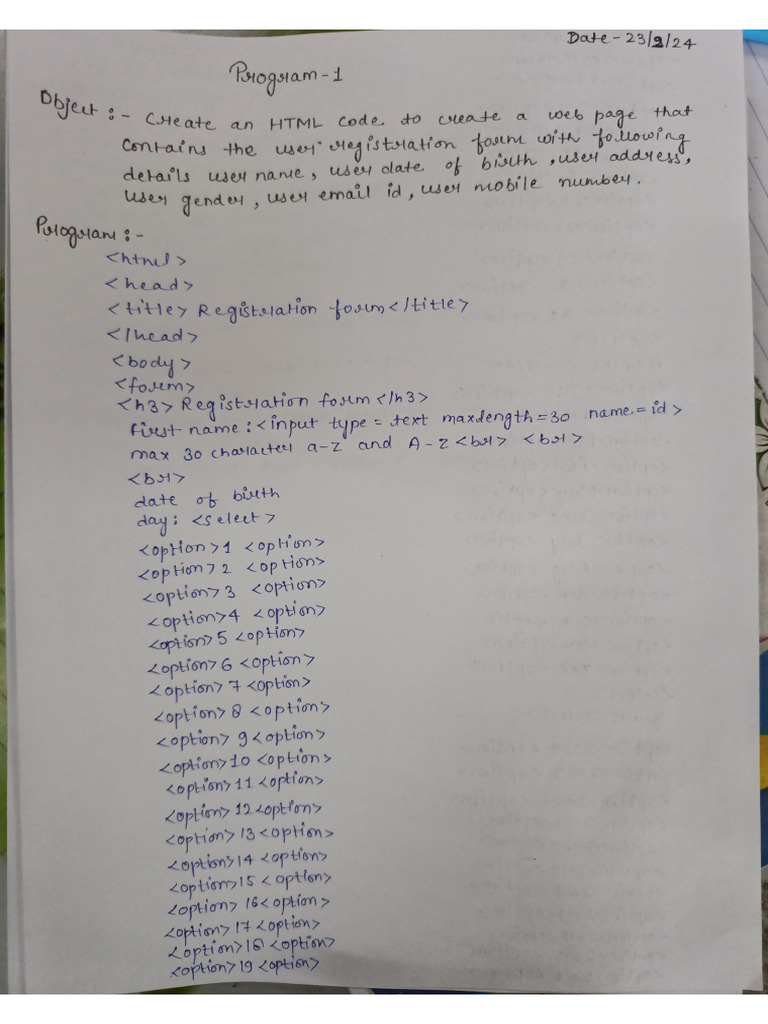 Date - 23/9/24
Program - 1
Object :- Create an HTML code to create a web page that
contains the user registration form with following
details user name, user date of birth, user address,
user gender, user email id, user mobile number.
Program :-
<html>
<head>
<title> Registration form </title>
</head>
<body>
<form>
<h3> Registration form </h3>
first name : <input type = text maxlength = 30 name = id>
max 30 character a-z and A-Z <br> <br>
<br>
date of birth
day : <select>
<option> 1 <option>
<option> 2 <option>
<option> 3 <option>
<option> 4 <option>
<option> 5 <option>
<option> 6 <option>
<option> 7 <option>
<option> 8 <option>
<option> 9 <option>
<option> 10 <option>
<option> 11 <option>
<option> 12 <option>
<option> 13 <option>
<option> 14 <option>
<option> 15 <option>
<option> 16 <option>
<option> 17 <option>
<option> 18 <option>
<option> 19 <option>